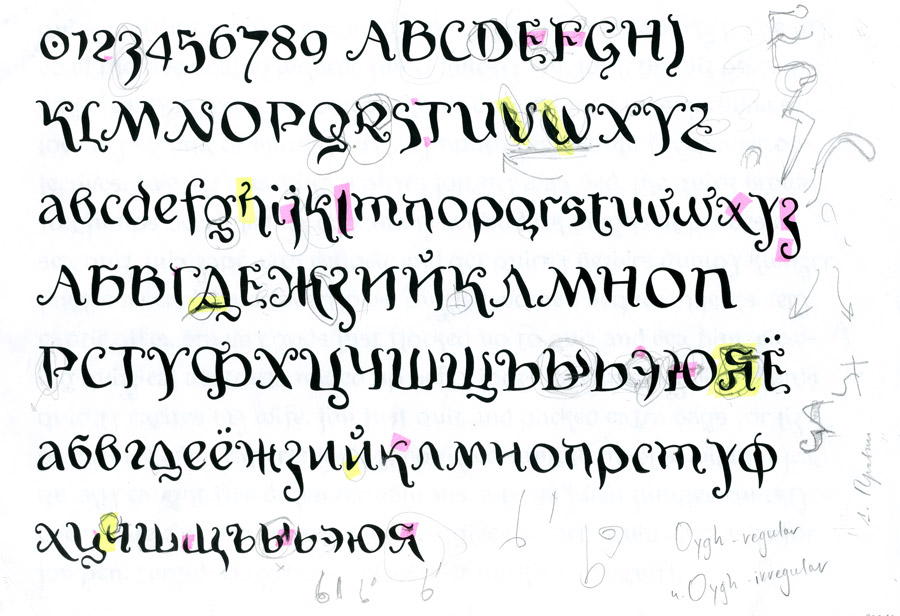 0123456789 ABCDEFGHJ
KLMNOPQRSTUVWXYZ
abcdefghijklmnopqrstuvwxyz
АБВГДЕЖЗИЙКЛМНОП
РСТУФХЦЧШЩЪЫЬЭЮЯЁ
абвгдеёжзийклмнопрстуф
хцчшщъыьэюя
Oygh - regular
u. Oygh - irregular